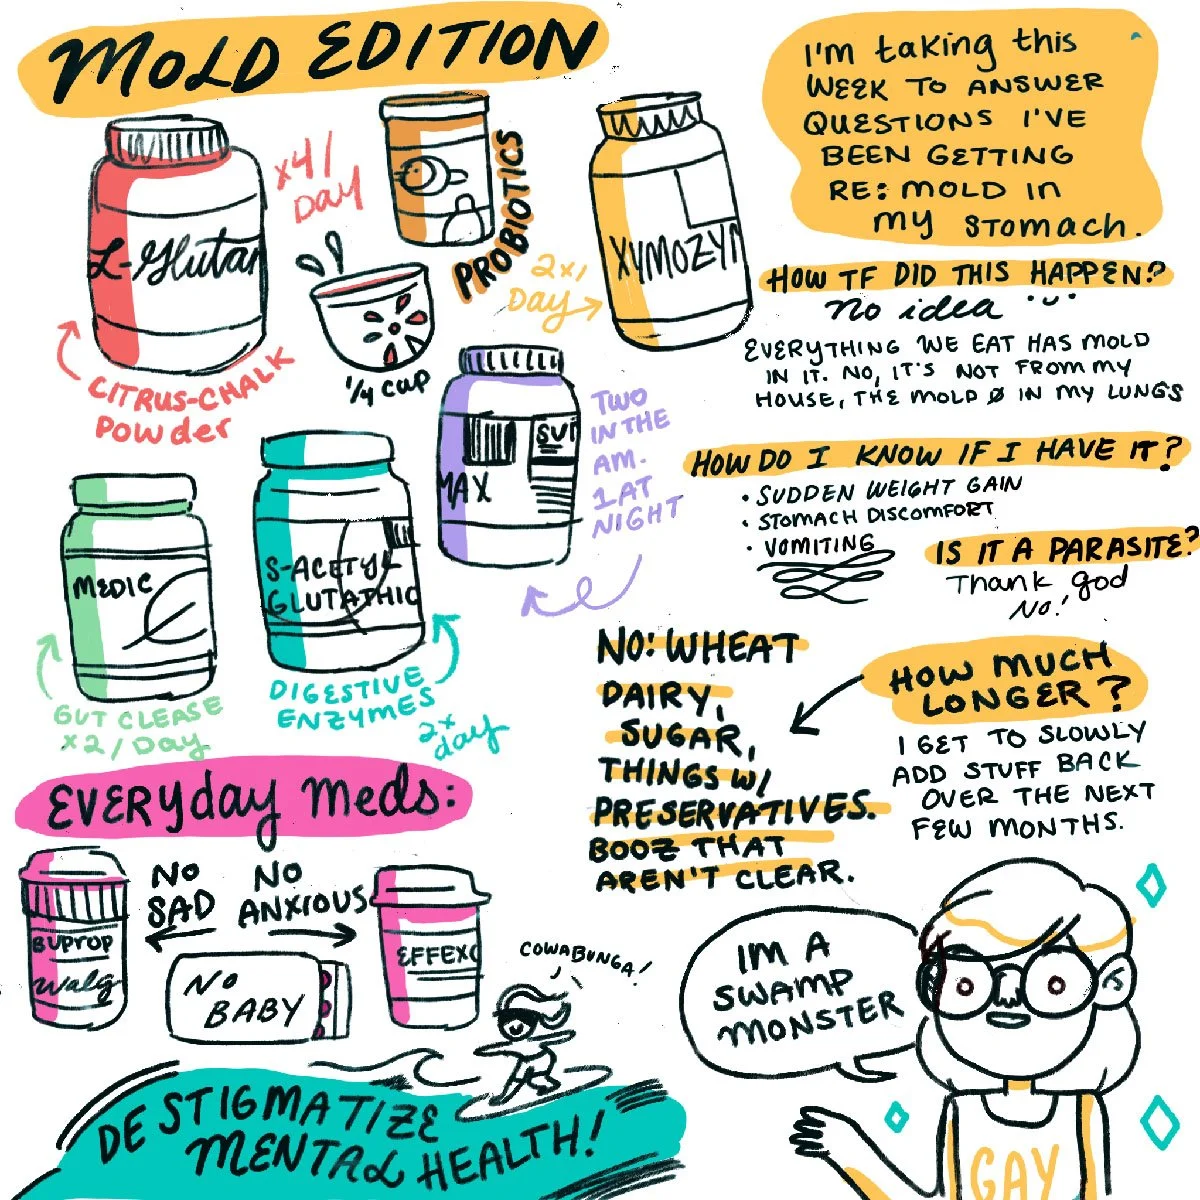 MOLD EDITION
I'm taking this
WEEK TO ANSWER
QUESTIONS I'VE
BEEN GETTING
RE: MOLD IN
my stomach.
L-Glutar
x4/
Day
CITRUS-CHALK
Powder
1/4 cup
PROBIOTICS
XYMOZYM
2x/
Day
HOW TF DID THIS HAPPEN?
No idea
EVERYTHING WE EAT HAS MOLD
IN IT. NO, IT'S NOT FROM MY
HOUSE, THE MOLD Ø IN MY LUNGS
MAX
SVI
TWO
IN THE
AM.
1 AT
NIGHT
HOW DO I KNOW IF I HAVE IT?
• SUDDEN WEIGHT GAIN
• STOMACH DISCOMFORT
• VOMITING
IS IT A PARASITE?
Thank god
No!
MEDIC
GUT CLEASE
x2/Day
S-ACETYL
GLUTATHIC
DIGESTIVE
ENZYMES
2x
day
NO: WHEAT
DAIRY,
SUGAR,
THINGS W/
PRESERVATIVES.
BOOZ THAT
AREN'T CLEAR.
HOW MUCH
LONGER?
I GET TO SLOWLY
ADD STUFF BACK
OVER THE NEXT
FEW MONTHS.
EVERYday meds:
NO
SAD
BUPROP
Walg
NO
ANXIOUS
EFFEXO
NO
BABY
COWABUNGA!
DESTIGMATIZE
MENTAL HEALTH!
IM A
SWAMP
MONSTER
GAY